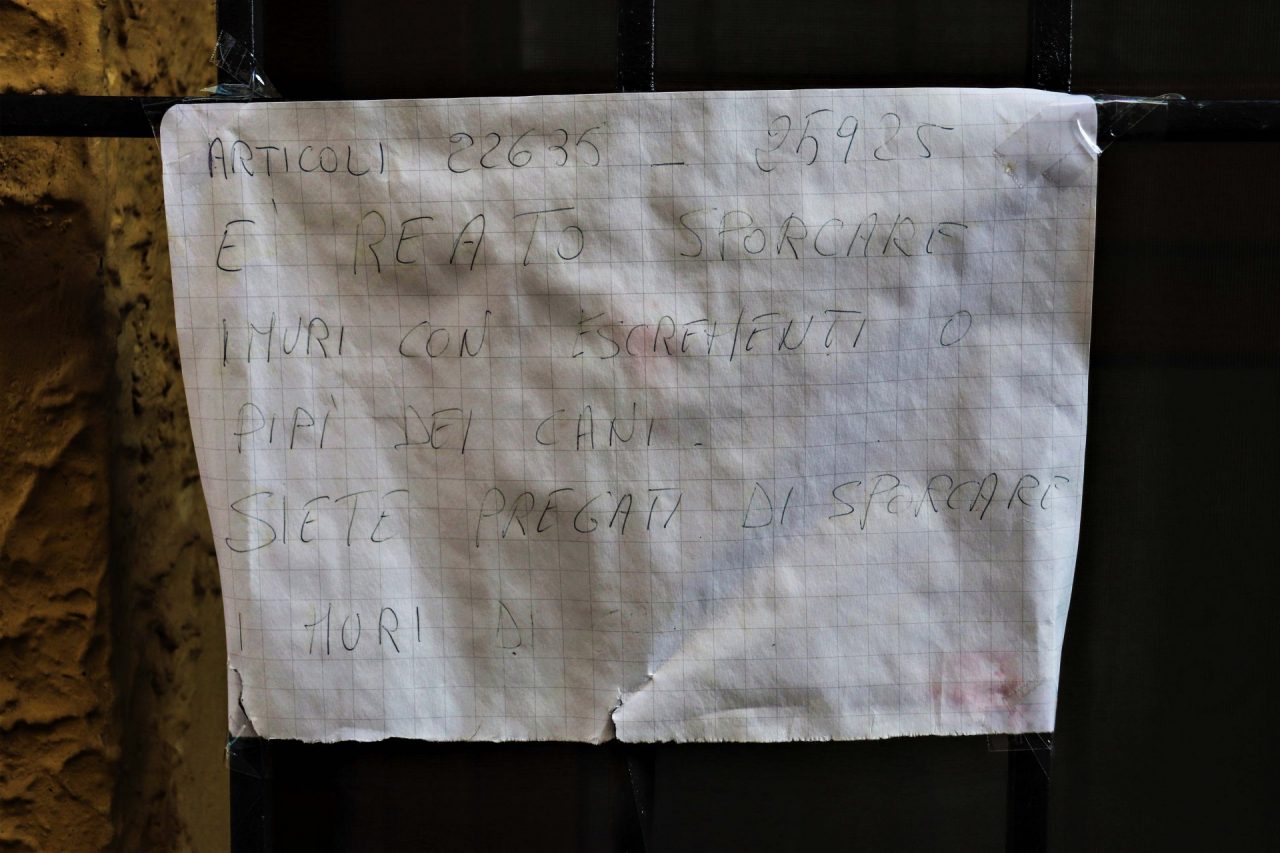 ARTICOLI 22635 - 25925
E' REATO SPORCARE
I MURI CON ESCREMENTI O
PIPÌ DEI CANI.
SIETE PREGATI DI SPORCARE
I MURI DI